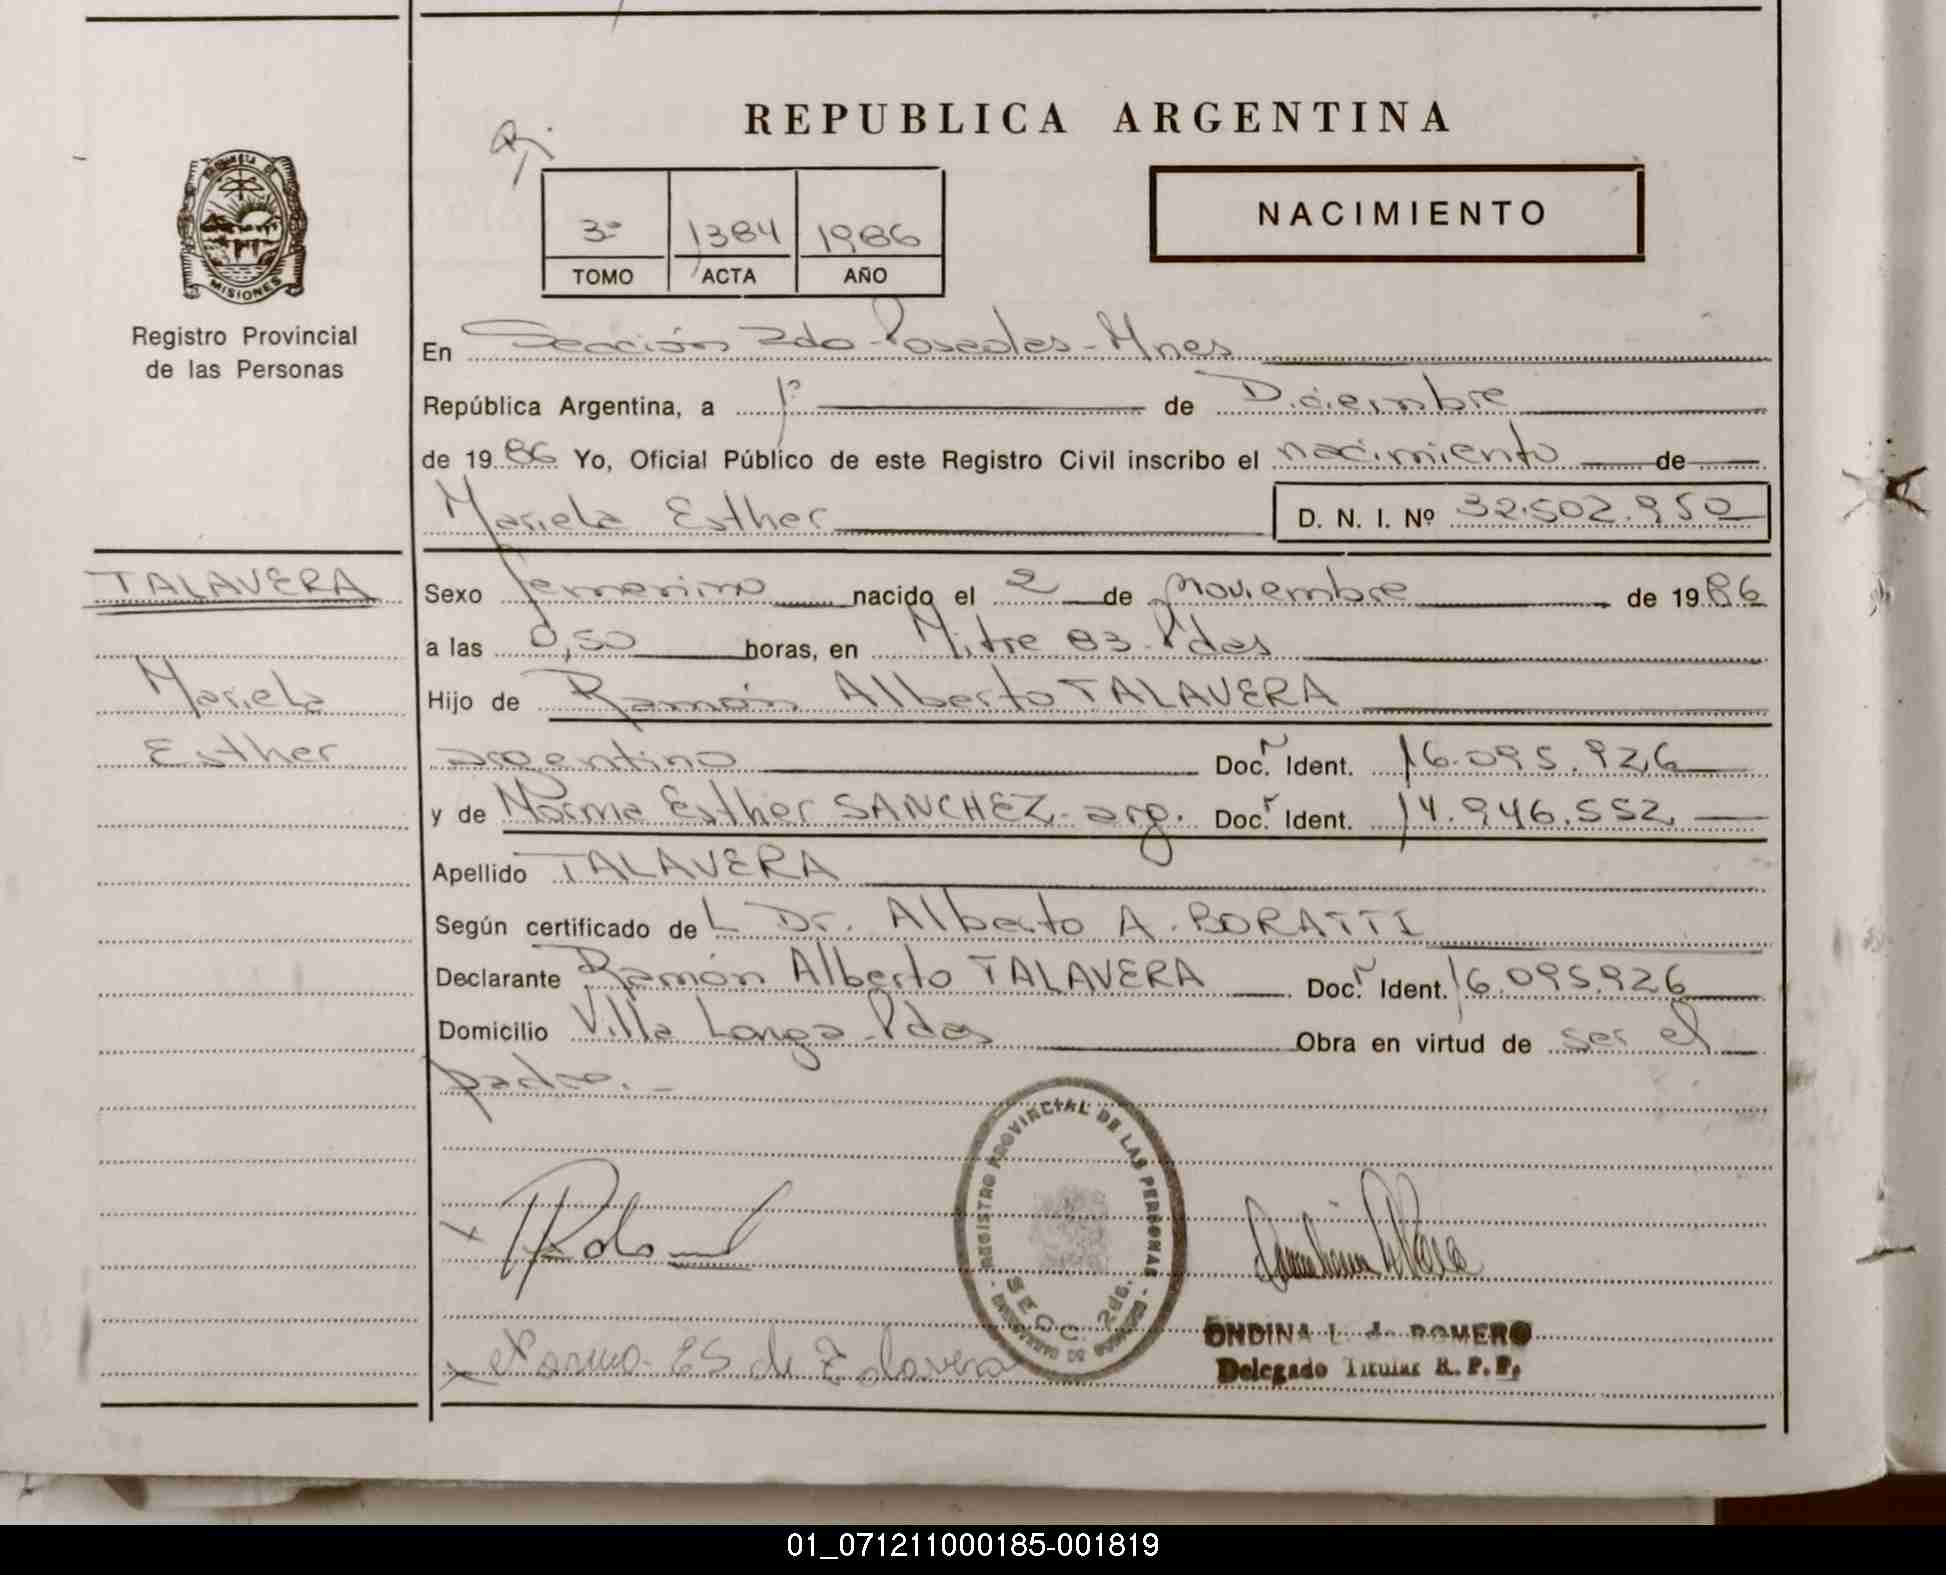 REPUBLICA ARGENTINA
NACIMIENTO
3º 1384 1986
TOMO ACTA AÑO
PROVINCIA DE
MISIONES
Registro Provincial
de las Personas
En Sección 2da Posadas-Mnes
República Argentina, a 1º de Diciembre
de 1986 Yo, Oficial Público de este Registro Civil inscribo el nacimiento de
Mariela Esther D. N. I. Nº 32.502.950
TALAVERA
Mariela
Esther
Sexo femenino nacido el 2 de noviembre de 1986
a las 0,50 horas, en Mitre 83-Pdas
Hijo de Ramón Alberto TALAVERA
argentino Doc. Ident. 16.095.926
y de Norma Esther SANCHEZ- arg. Doc. Ident. 14.946.552
Apellido TALAVERA
Según certificado de L Dr. Alberto A. BORATTI
Declarante Ramón Alberto TALAVERA Doc. Ident. 16.095.926
Domicilio Villa Longa-Pdas Obra en virtud de ser el
padre.-
REGISTRO PROVINCIAL DE LAS PERSONAS
SECC. 2da.
Norma ES de Talavera
ONDINA L. de ROMERO
Delegado Titular R. P. P.
01_071211000185-001819